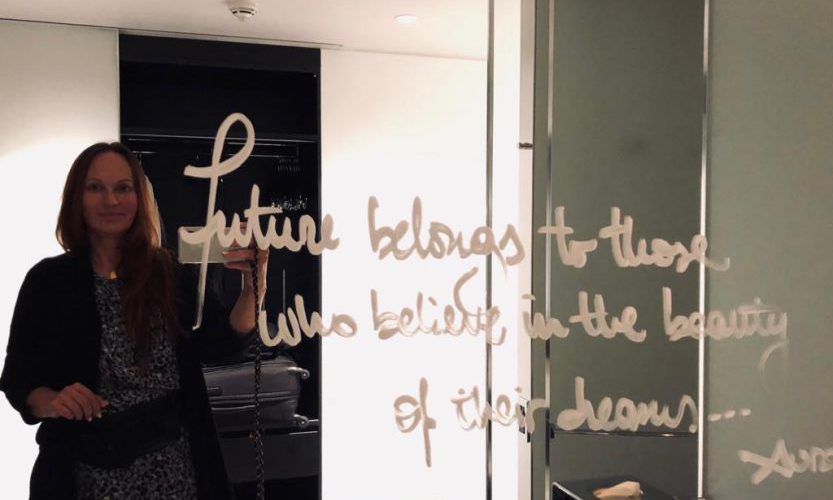 future belongs to those
who believe in the beauty
of their dreams...